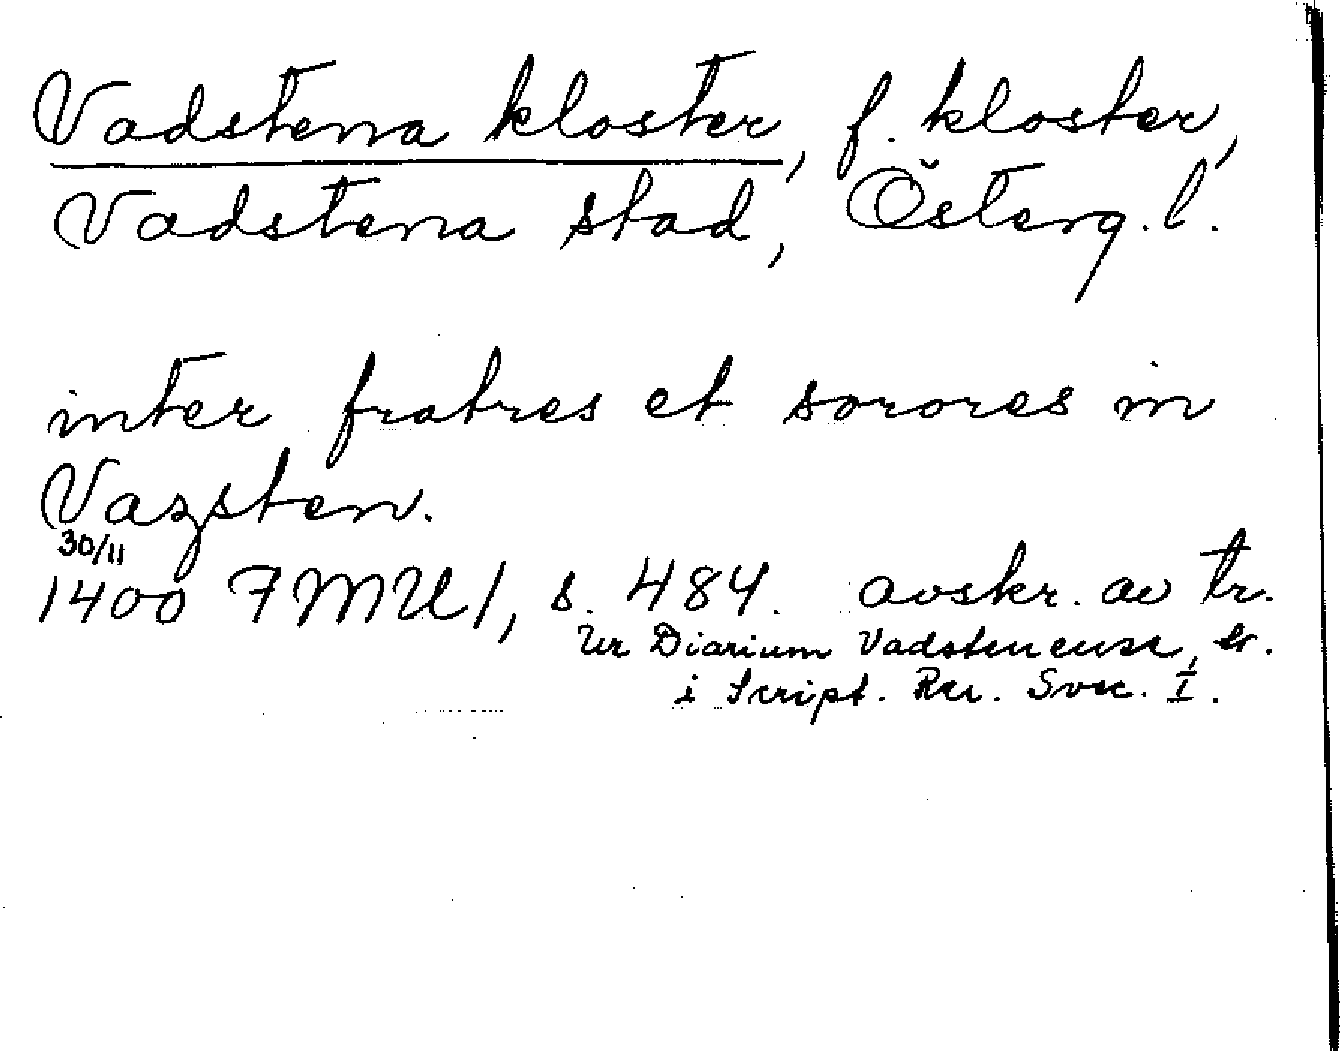 Vadstena kloster, f. kloster,
Vadstena stad, Österg. l.
inter fratres et sorores in
Vazsten.
30/11
1400 FMU 1, s. 484. avskr. av tr.
Ur Diarium Vadstenense, tr.
i Script. Rer. Svec. I.